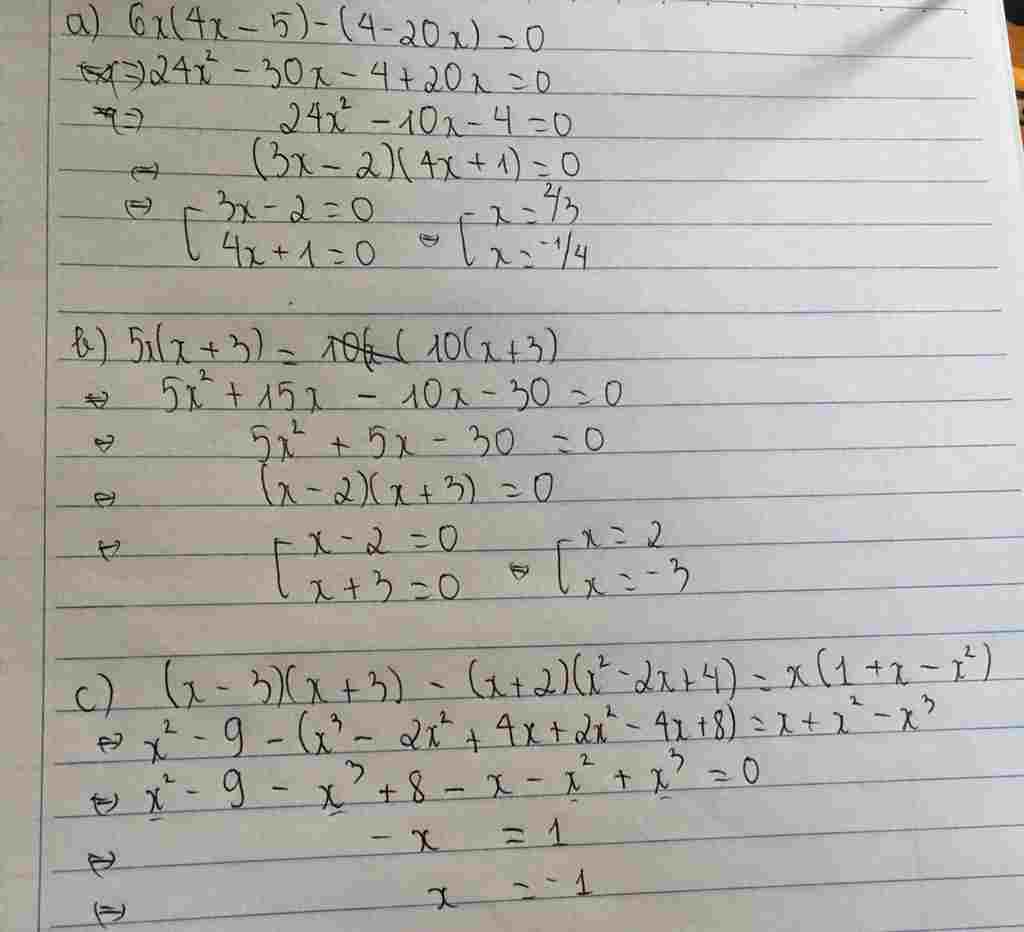 a) 6x(4x - 5) - (4 - 20x) = 0
⇔ 24x² - 30x - 4 + 20x = 0
⇔ 24x² - 10x - 4 = 0
⇔ (3x - 2)(4x + 1) = 0
⇔ [ 3x - 2 = 0 ⇔ [ x = 2/3
4x + 1 = 0 x = -1/4
b) 5x(x + 3) = 10(x + 3)
⇔ 5x² + 15x - 10x - 30 = 0
⇔ 5x² + 5x - 30 = 0
⇔ (x - 2)(x + 3) = 0
⇔ [ x - 2 = 0 ⇔ [ x = 2
x + 3 = 0 x = -3
c) (x - 3)(x + 3) - (x + 2)(x² - 2x + 4) = x(1 + x - x²)
⇔ x² - 9 - (x³ - 2x² + 4x + 2x² - 4x + 8) = x + x² - x³
⇔ x² - 9 - x³ + 8 - x - x² + x³ = 0
⇔ - x = 1
⇔ x = -1